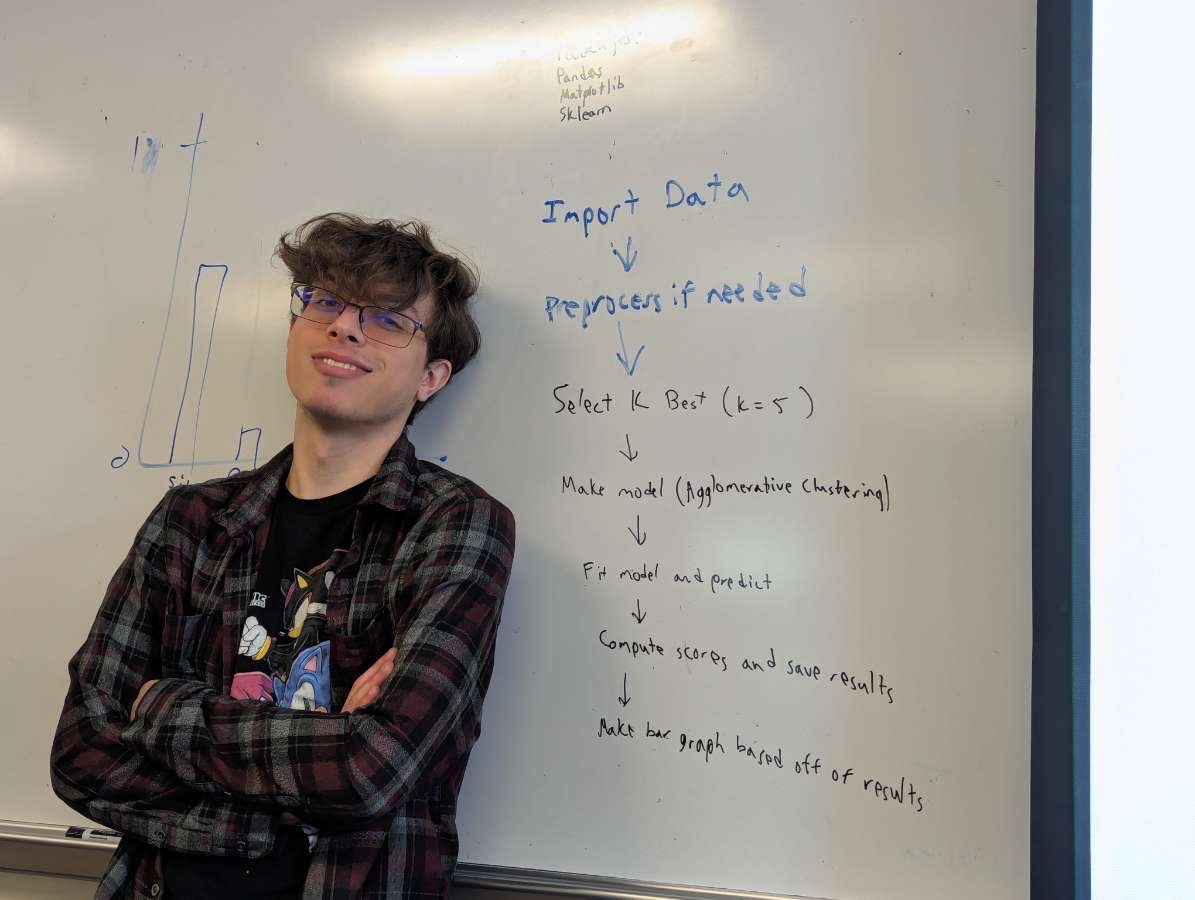 Pandas
Matplotlib
Sklearn
Import Data
Preprocess if needed
Select K Best (k=5)
Make model (Agglomerative Clustering)
Fit model and predict
Compute scores and save results
Make bar graph based off of results
0